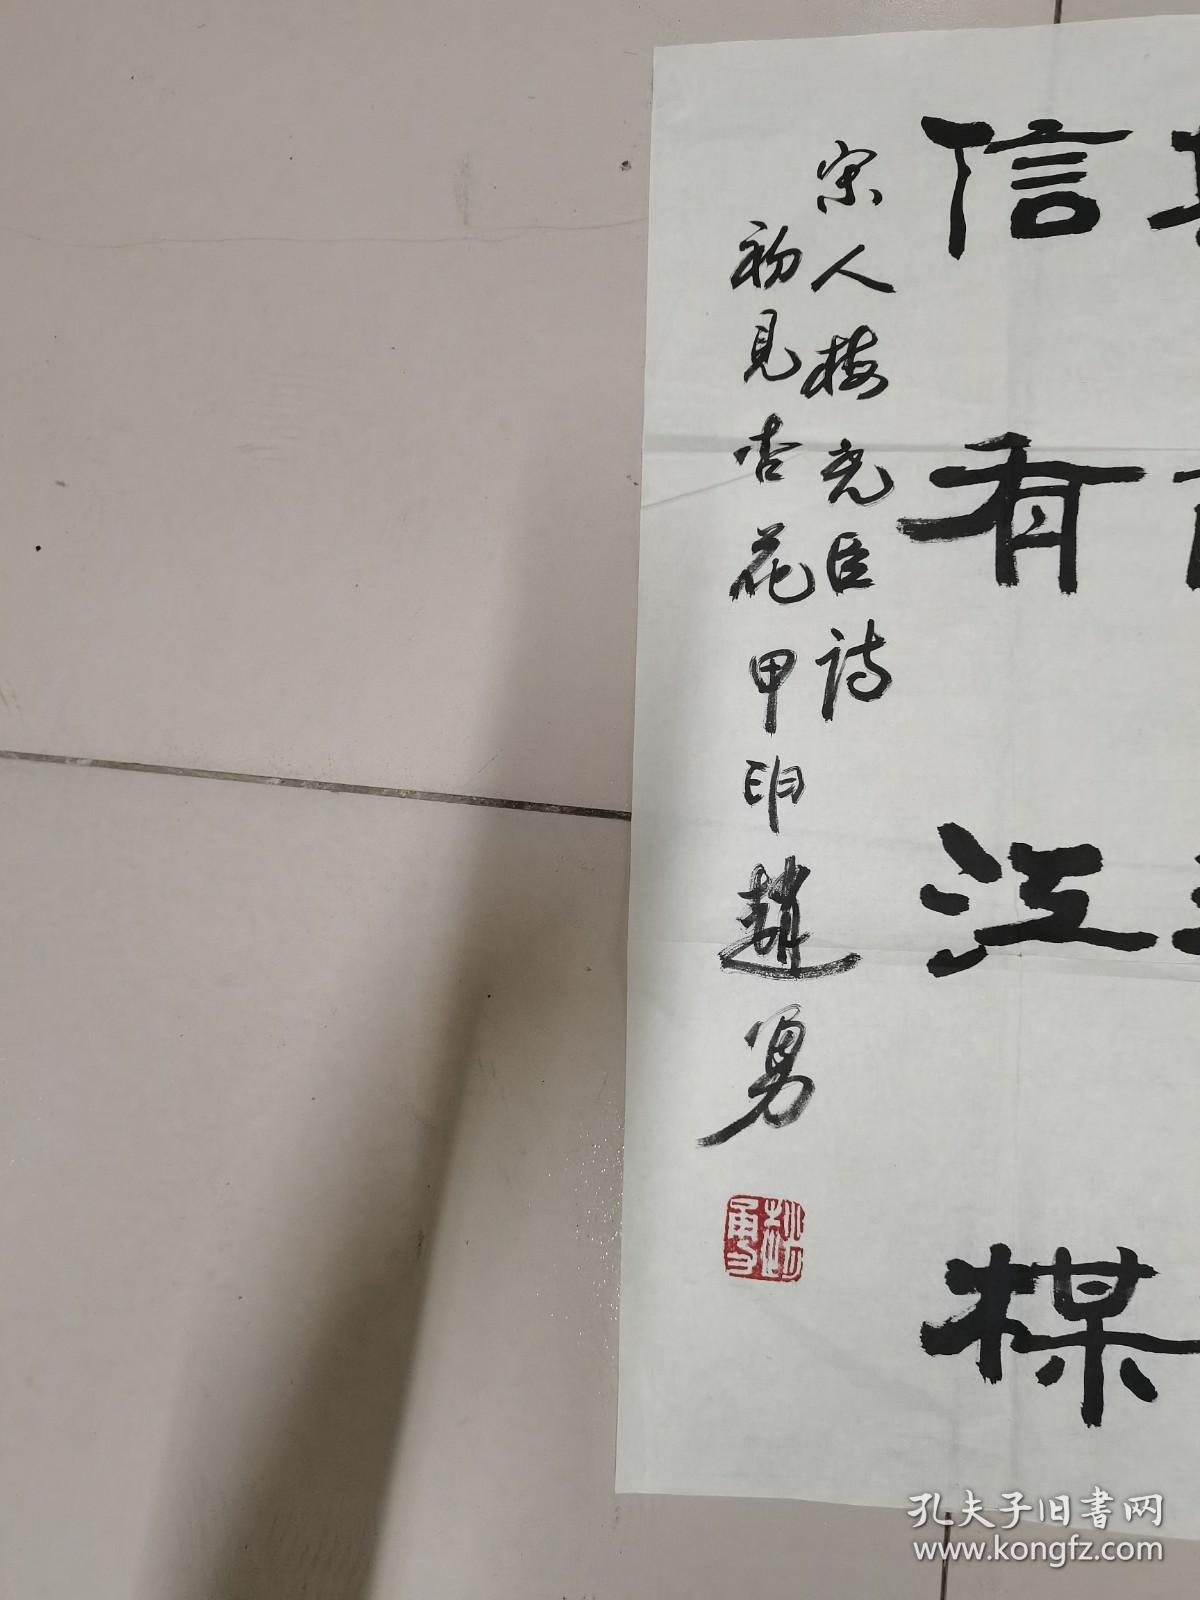 信有江楳
宋人梅尧臣诗
初見杏花甲申趙勇
趙勇
孔夫子旧书网
www.kongfz.com